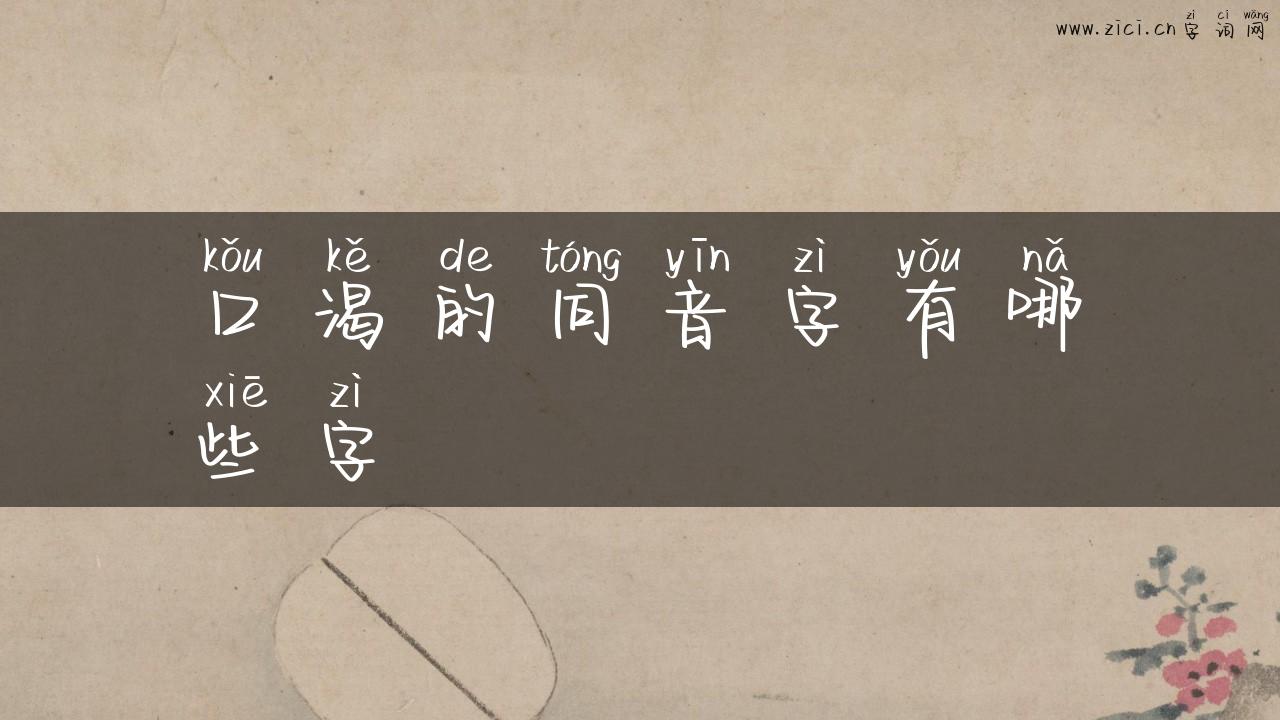 www.zici.cn zì cí wǎng
字词网
kǒu kě de tóng yīn zì yǒu nǎ
口渴的同音字有哪
xiē zì
些字